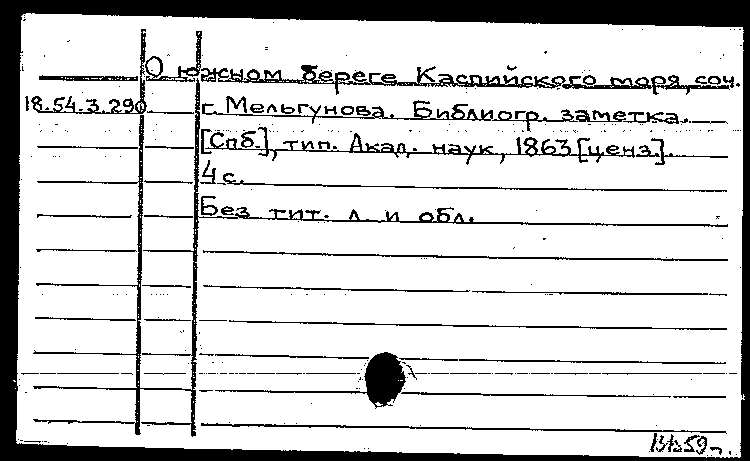 О южном береге Каспийского моря, соч.
18.54.3.290. г. Мельгунова. Библиогр. заметка.
[Спб.], тип. Акад. наук, 1863 [ценз.].
4 с.
Без тит. л. и обл.